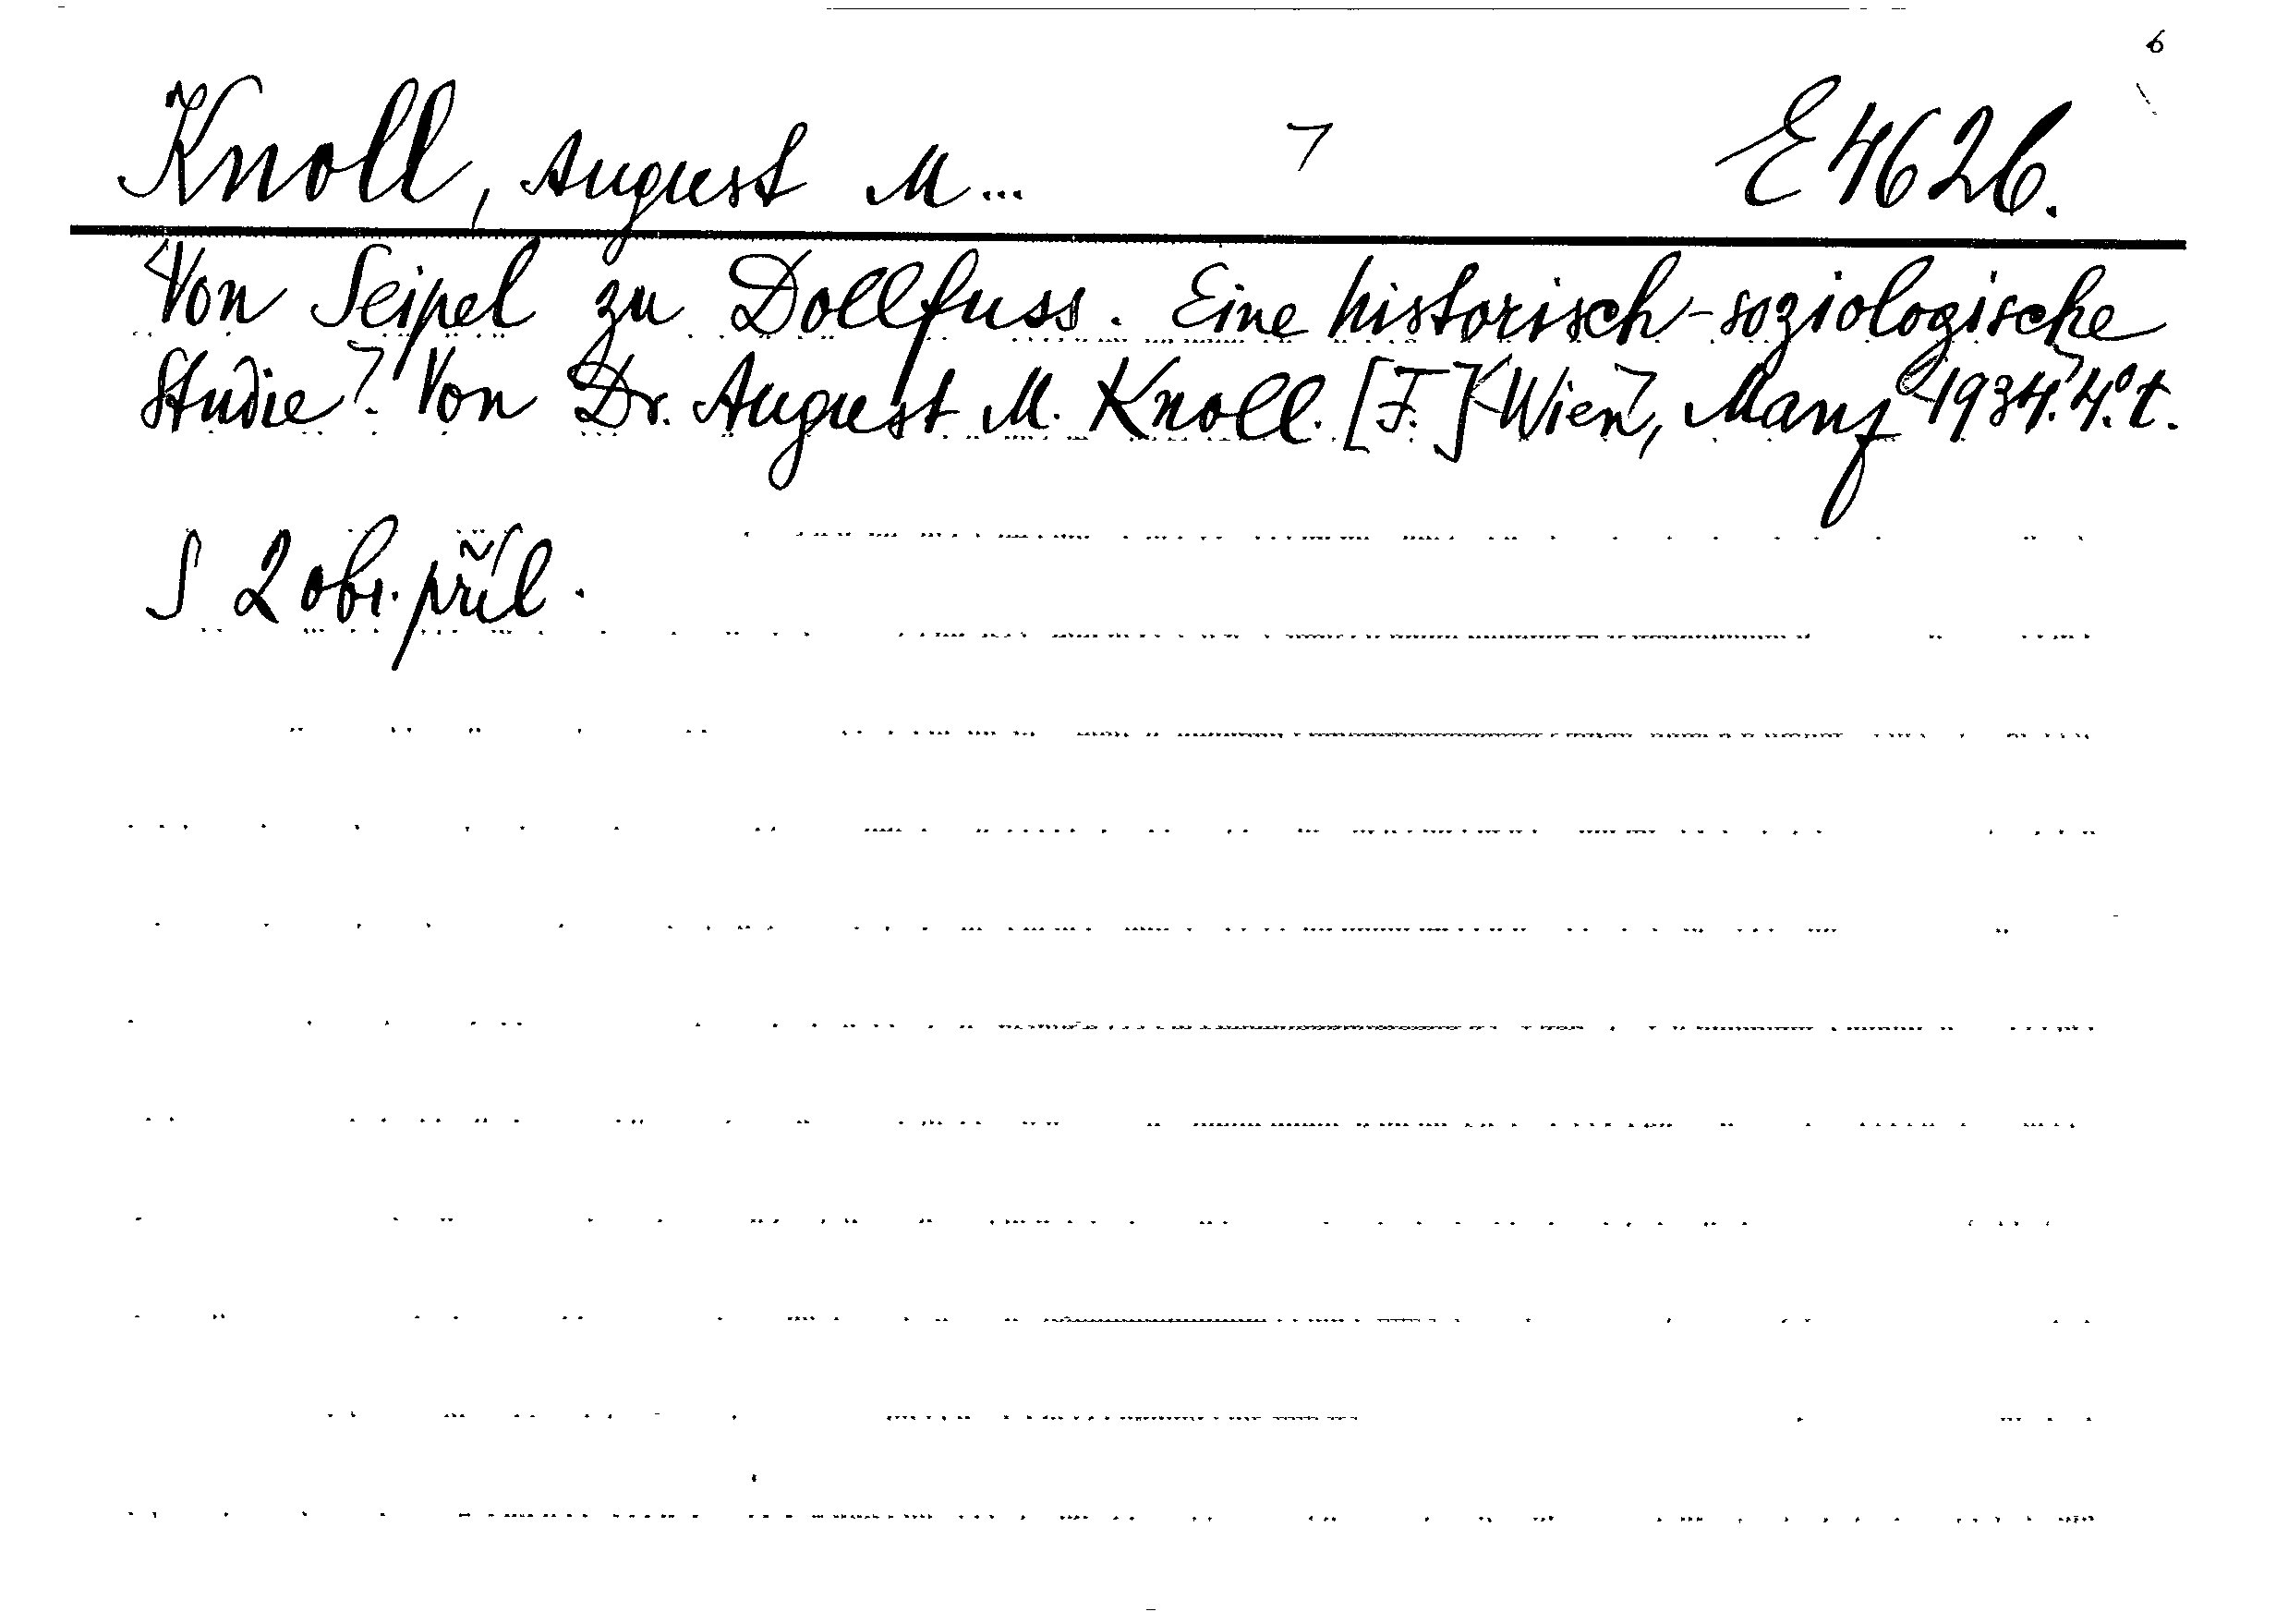 6
Knoll, August M... ⌝ E 4626.
Von Seipel zu Dollfuss. Eine historisch-soziologische
Studie⌝. Von Dr. August M. Knoll. [F.] Wien⌝, Manz 1934.⌝ 4.° t.
S 2 obr. příl.